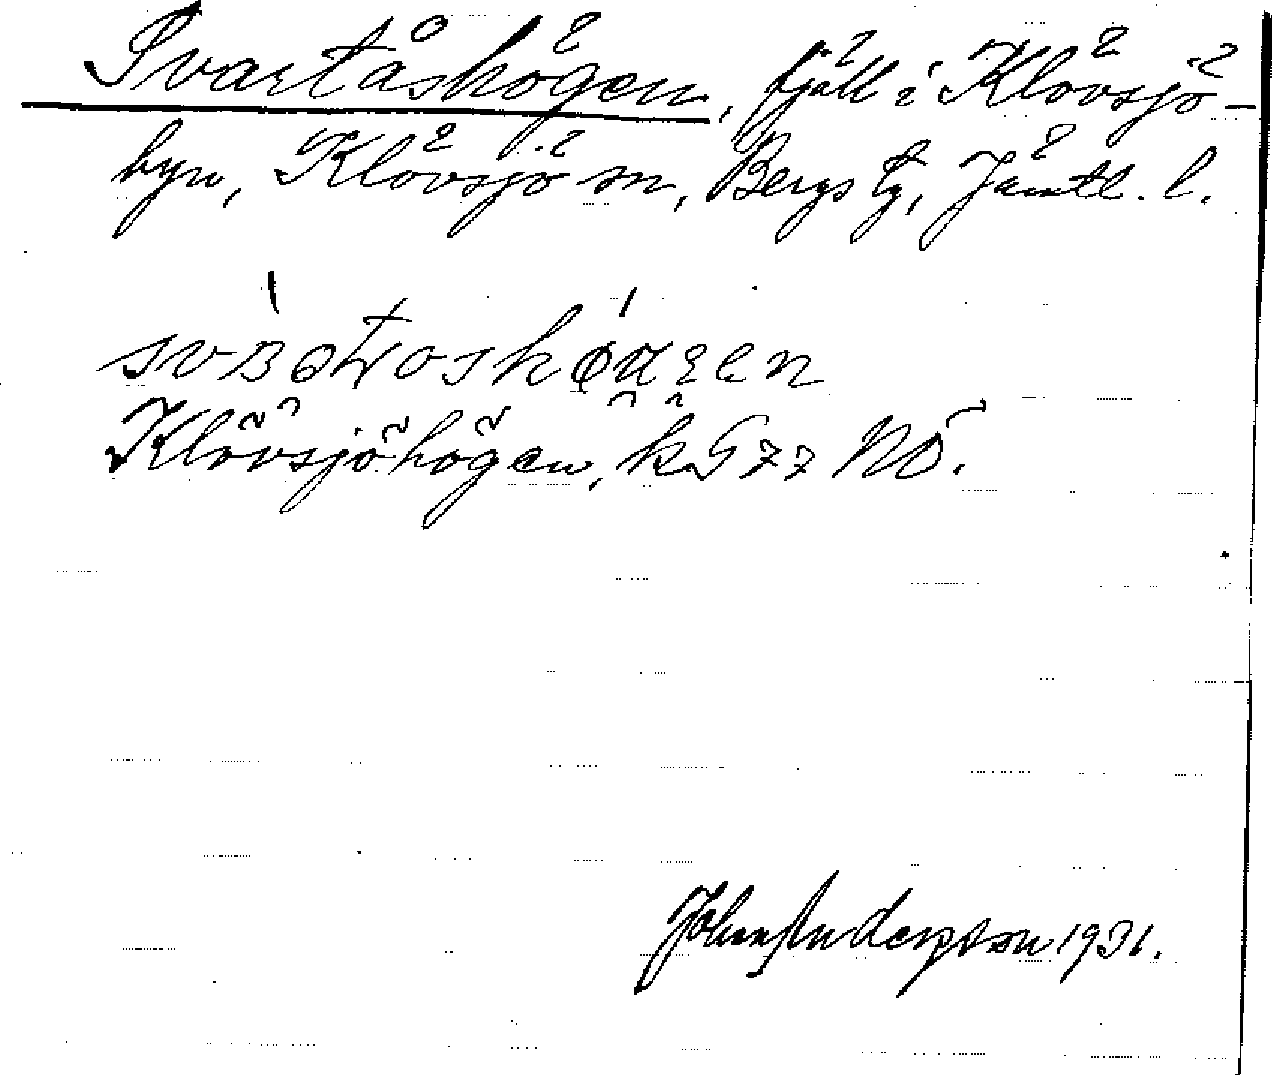 Svartåshögen, fjäll i Klövsjö-
byn, Klövsjö sn, Bergs tg, Jämtl. l.
Klövsjöhögen, k G 77 NÖ.
John Anderson 1931.